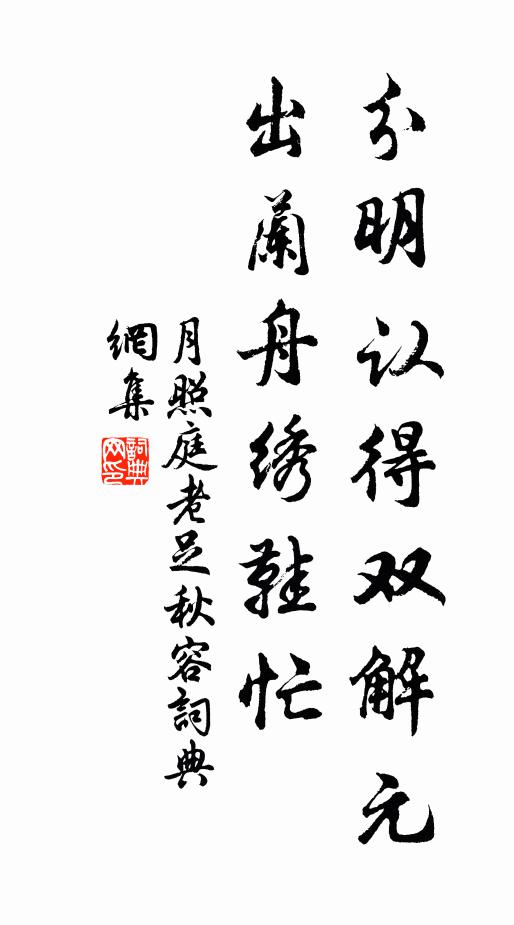 分明认得双解元
出兰舟绣鞋忙
月照庭老足秋容詞典
網集
詞典
网印